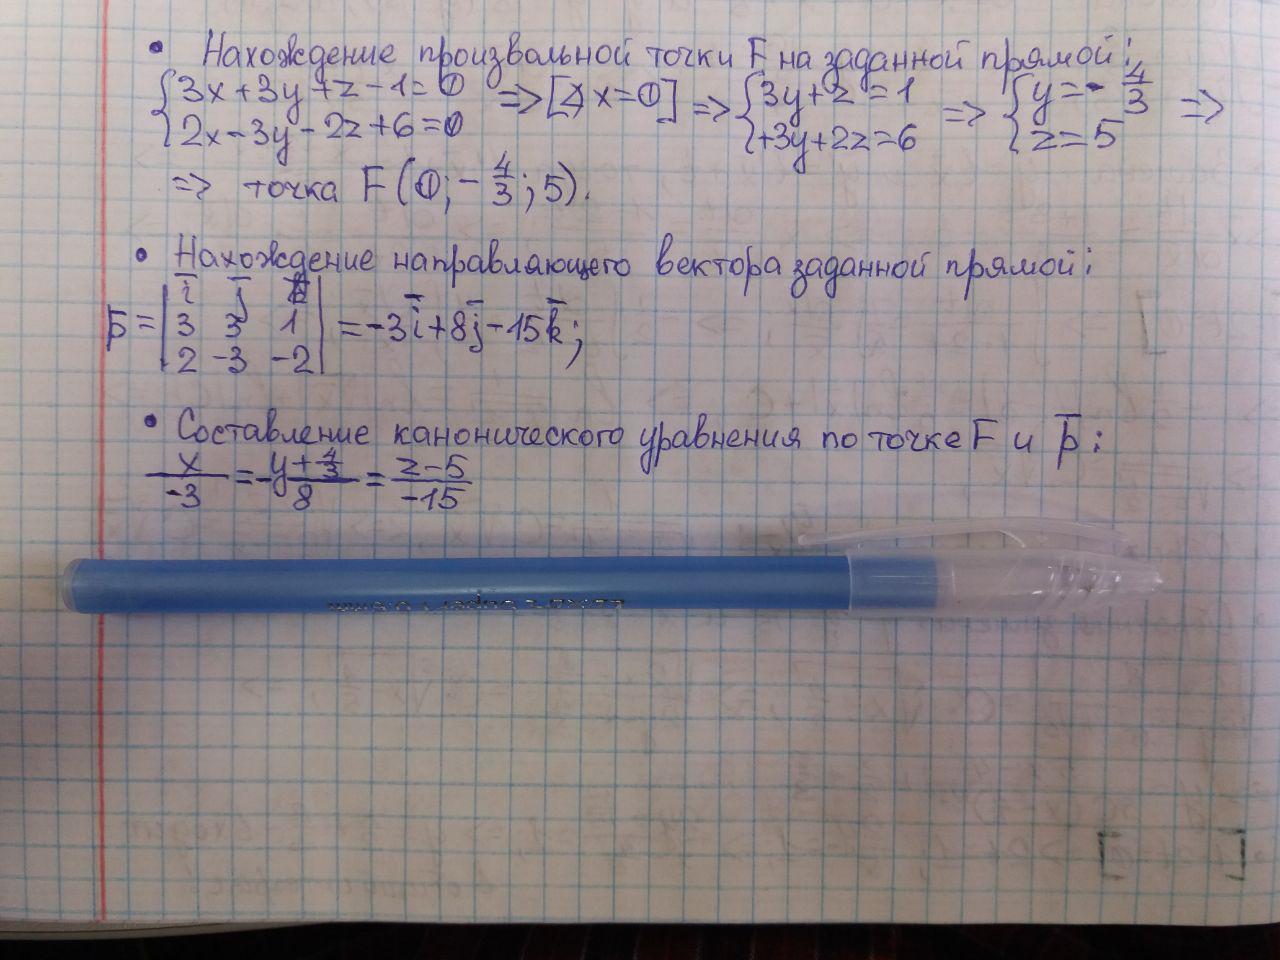 • Нахождение произвольной точки F на заданной прямой:
{3x+3y+z-1=0 {2x-3y-2z+6=0 => [x=0] => {3y+z=1 {+3y+2z=6 => {y=-4/3 {z=5 =>
=> точка F(0;-4/3;5).
• Нахождение направляющего вектора заданной прямой:
p̅ = |i̅ j̅ k̅| |3 3 1| |2 -3 -2| = -3i̅+8j̅-15k̅;
• Составление канонического уравнения по точке F и p̅:
x/-3 = y+4/3/8 = z-5/-15